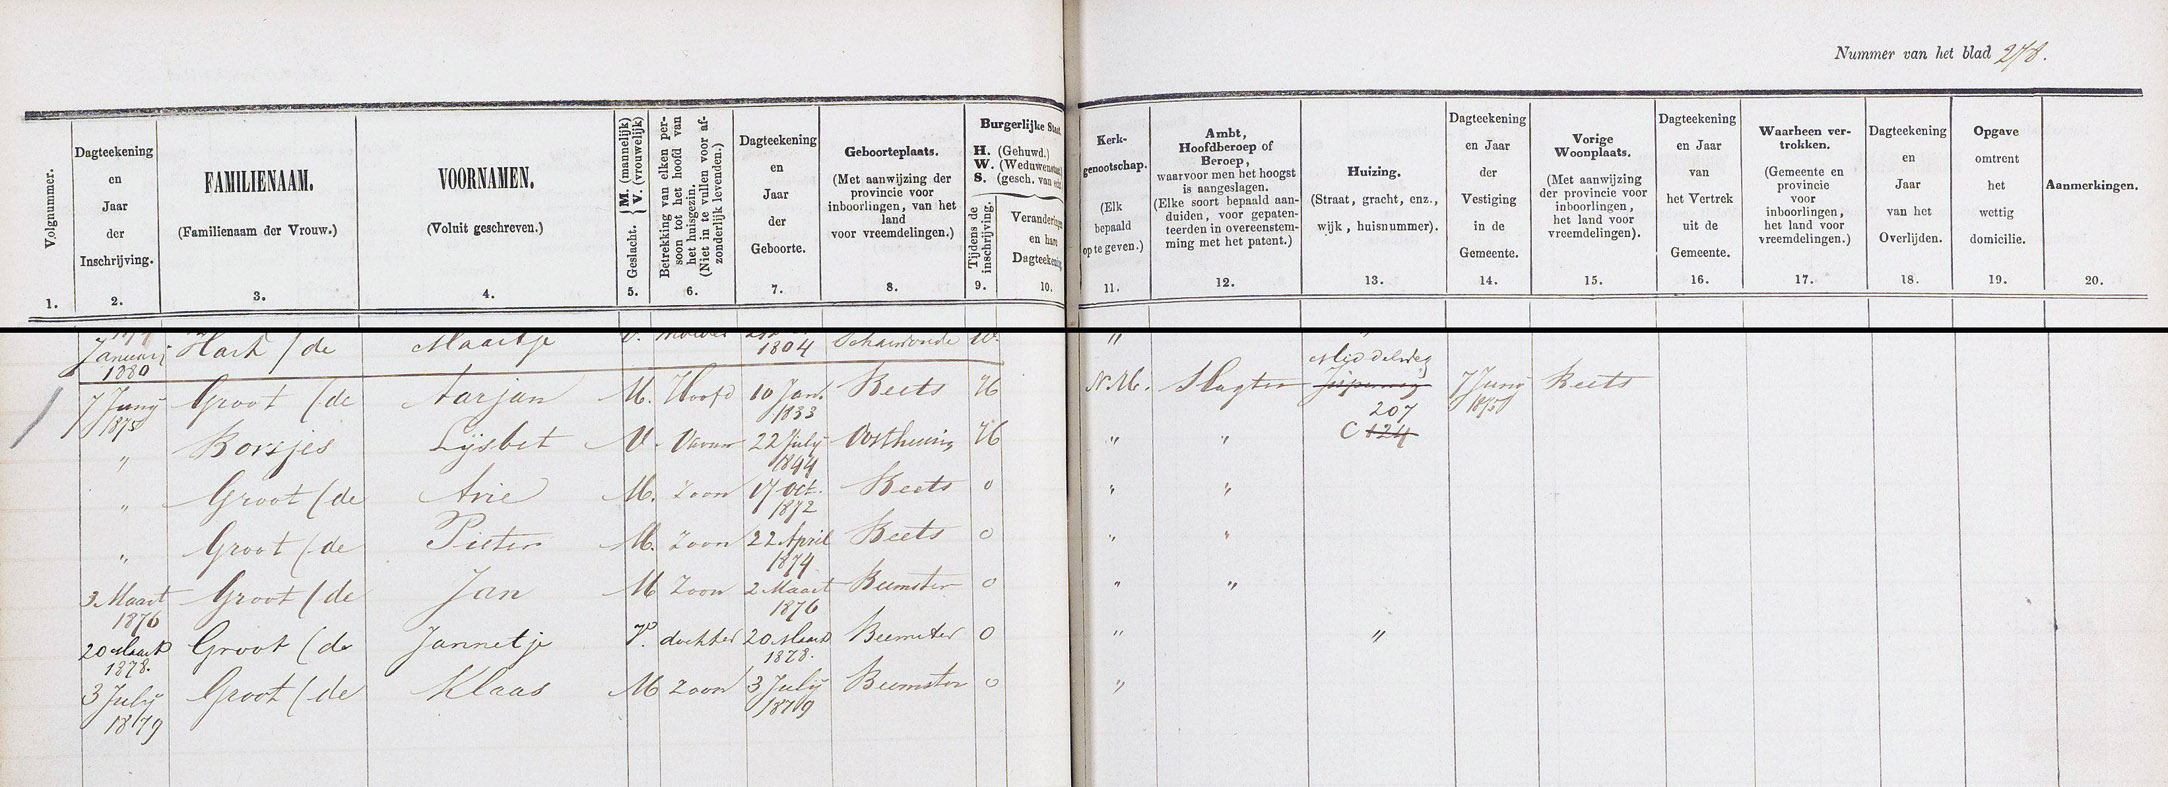 Nummer van het blad 278.
Volgnummer.
1.
Dagteekening
en
Jaar
der
Inschrijving.
2.
FAMILIENAAM.
(Familienaam der Vrouw.)
3.
VOORNAMEN.
(Voluit geschreven.)
4.
Geslacht. { M. (mannelijk) V. (vrouwelijk)
5.
Betrekking van elken per-
soon tot het hoofd van
het huisgezin.
(Niet in te vullen voor af-
zonderlijk levenden.)
6.
Dagteekening
en
Jaar
der
Geboorte.
7.
Geboorteplaats.
(Met aanwijzing der
provincie voor
inboorlingen, van het
land
voor vreemdelingen.)
8.
Burgerlijke Staat
H. (Gehuwd.)
W. (Weduwenstaat)
S. (gesch. van echt
Tijdens de
inschrijving.
9.
Veranderingen
en hare
Dagteekening
10.
Kerk-
genootschap.
(Elk
bepaald
op te geven.)
11.
Ambt,
Hoofdberoep of
Beroep,
waarvoor men het hoogst
is aangeslagen.
(Elke soort bepaald aan-
duiden, voor gepaten-
teerden in overeenstem-
ming met het patent.)
12.
Huizing.
(Straat, gracht, enz.,
wijk, huisnummer).
13.
Dagteekening
en Jaar
der
Vestiging
in de
Gemeente.
14.
Vorige
Woonplaats.
(Met aanwijzing
der provincie voor
inboorlingen,
het land voor
vreemdelingen).
15.
Dagteekening
en Jaar
van
het Vertrek
uit de
Gemeente.
16.
Waarheen ver-
trokken.
(Gemeente en
provincie
voor
inboorlingen,
het land voor
vreemdelingen.)
17.
Dagteekening
en
Jaar
van het
Overlijden.
18.
Opgave
omtrent
het
wettig
domicilie.
19.
Aanmerkingen.
20.
Januarij 1880 Hart (de Maartje V. 1804 W. "
7 Junij 1875 Groot (de Aarjan M. Hoofd 10 Jan. 1833 Beets H N.H. Slagter Middelweg 207 C 124 7 Junij 1875 Beets
" Borsjes Lijsbet V. Vrouw 22 July 1844 Oosthuizen H " "
" Groot (de Arie M. Zoon 17 Oct. 1872 Beets 0 " "
" Groot (de Pieter M. Zoon 22 April 1874 Beets 0 " "
3 Maart 1876 Groot (de Jan M Zoon 2 Maart 1876 Beemster 0 " "
20 Maart 1878. Groot (de Jannetje V. dochter 20 Maart 1878. Beemster 0 " "
3 July 1879 Groot (de Klaas M Zoon 3 July 1879 Beemster 0 "